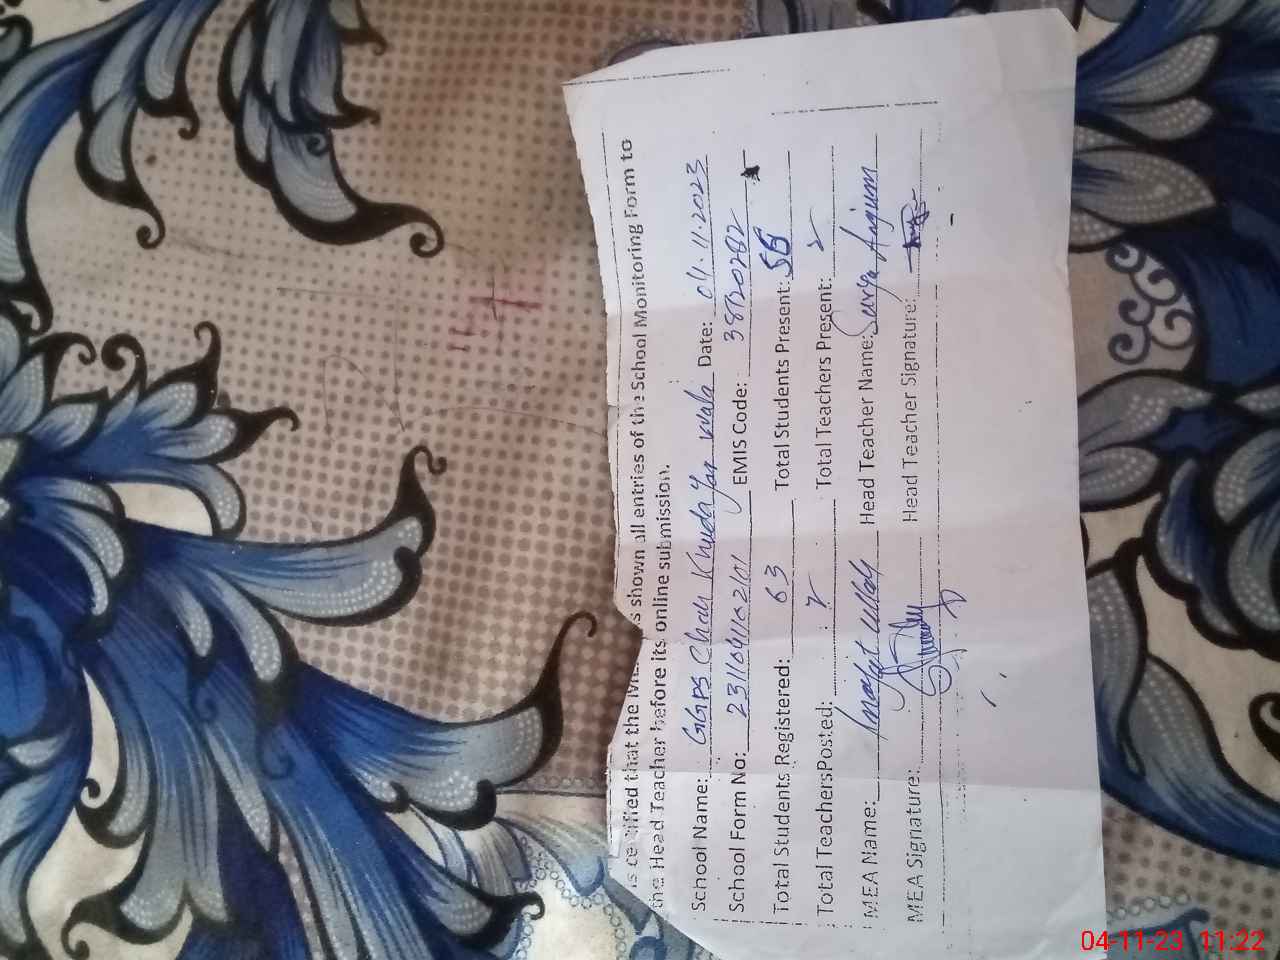 is certified that the MEA has shown all entries of the School Monitoring Form to
the Head Teacher before its online submission.
School Name: GGPS Chah Khuda Yar Wala Date: 04.11.2023
School Form No: 2311041102101 EMIS Code: 38120282
Total Students Registered: 63 Total Students Present:
Total TeachersPosted: 2 Total Teachers Present: 2
MEA Name: Head Teacher Name: Surya Anjum
MEA Signature: Head Teacher Signature:
04-11-23 11:22